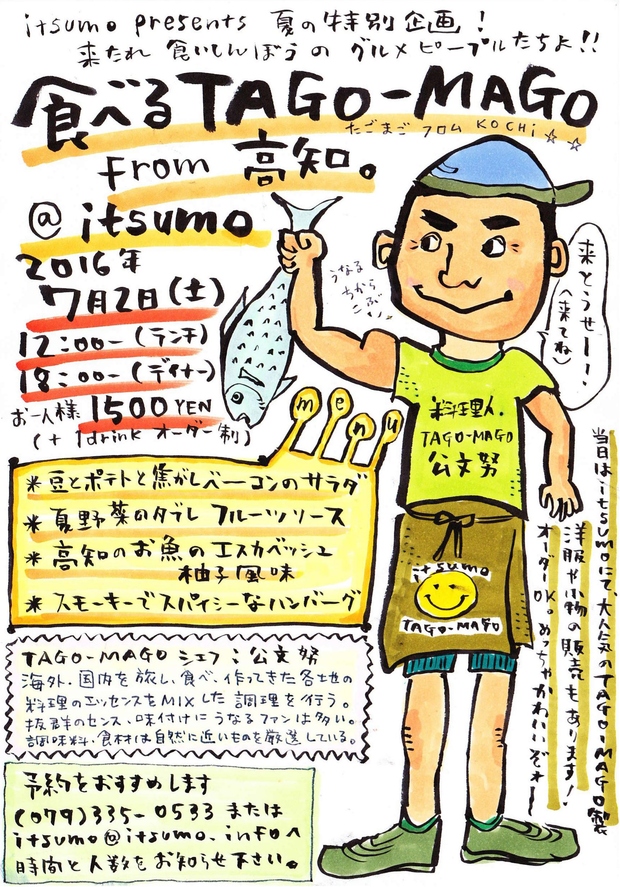 itsumo presents 夏の特別企画！
来たれ 食いしんぼうの グルメピープルたちよ!!
食べるTAGO-MAGO
たごまご フロム KOCHi☆☆
From 高知。
@ itsumo
2016年
7月2日(土)
12:00-(ランチ)
18:00-(ディナー)
お一人様 1500 YEN
(+ 1drink オーダー制)
うなる
ちから
こぶ
来とうせー!!
(来てね)
menu
*豆とポテトと焦がしベーコンのサラダ
*夏野菜のタブレ フルーツソース
*高知のお魚のエスカベッシュ
柚子風味
*スモーキーでスパイシーなハンバーグ
料理人.
TAGO-MAGO
公文努
itsumo
TAGO-MAGO
当日はitsumoにて、大人気のTAGO-MAGO製
洋服や小物の販売もあります!
オーダーOK。めっちゃかわいいぞォー
TAGO-MAGO シェフ:公文努
海外・国内を旅し、食べ、作ってきた各土地の
料理のエッセンスをMIXした調理を行う。
抜群のセンス、味付けにうなるファンは多い。
調味料・食材は自然に近いものを厳選している。
予約をおすすめします
(079)335-0533 または
itsumo@itsumo.infoへ
時間と人数をお知らせ下さい。